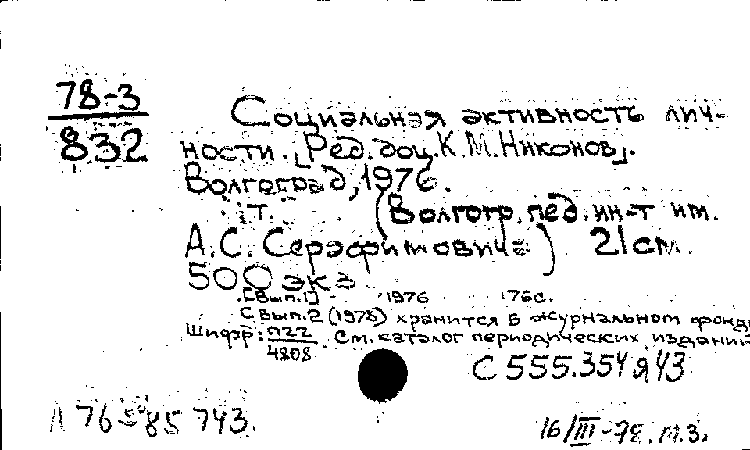 78-3
832
Социальная активность лич-
ности. [Ред. доц. К.М. Никонов].
Волгоград, 1976.
т.
(Волгогр. пед. ин-т им.
А.С. Серафимовича) 21 см.
500 экз
[Вып. 1] 1976 176с.
С вып. 2 (1978) хранится в журнальном фонде
Шифр: П22/4808. См. каталог периодических изданий
С555.354я43
16/III-78. М.З.